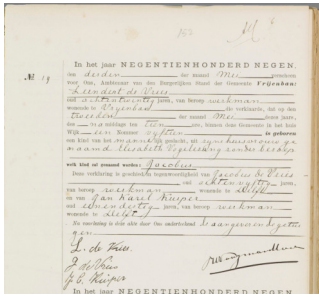 In het jaar NEGENTIENHONDERD NEGEN,
№ 19
den derden der maand Mei verschenen
voor Ons, Ambtenaar van den Burgerlijken Stand der Gemeente Vrijenban:
Leendert de Vries
oud achtentwintig jaren, van beroep werkman
wonende te Vrijenban die verklaarde, dat op den
tweeden der maand Mei dezes jaars,
des middags ten tien ure, binnen deze Gemeente in het huis
Wijk een Nommer vijftien is geboren
een kind van het mannelijk geslacht, uit zijne huisvrouw ge-
naamd Elisabeth Vogelezang zonder beroep
welk kind zal genaamd worden: Jacobus
Deze verklaring is geschied in tegenwoordigheid van Jacobus de Vries
oud achtenvijftig jaren,
van beroep werkman wonende te Delft
en van Jan Karel Kuiper
oud eenendertig jaren, van beroep werkman
wonende te Delft
En na voorlezing is deze akte door Ons onderteekend de aangever en de getui-
gen.
L. de Vries
J de Vries
J. C. Kuiper
In het jaar NEGENTIENHONDERD NEGEN